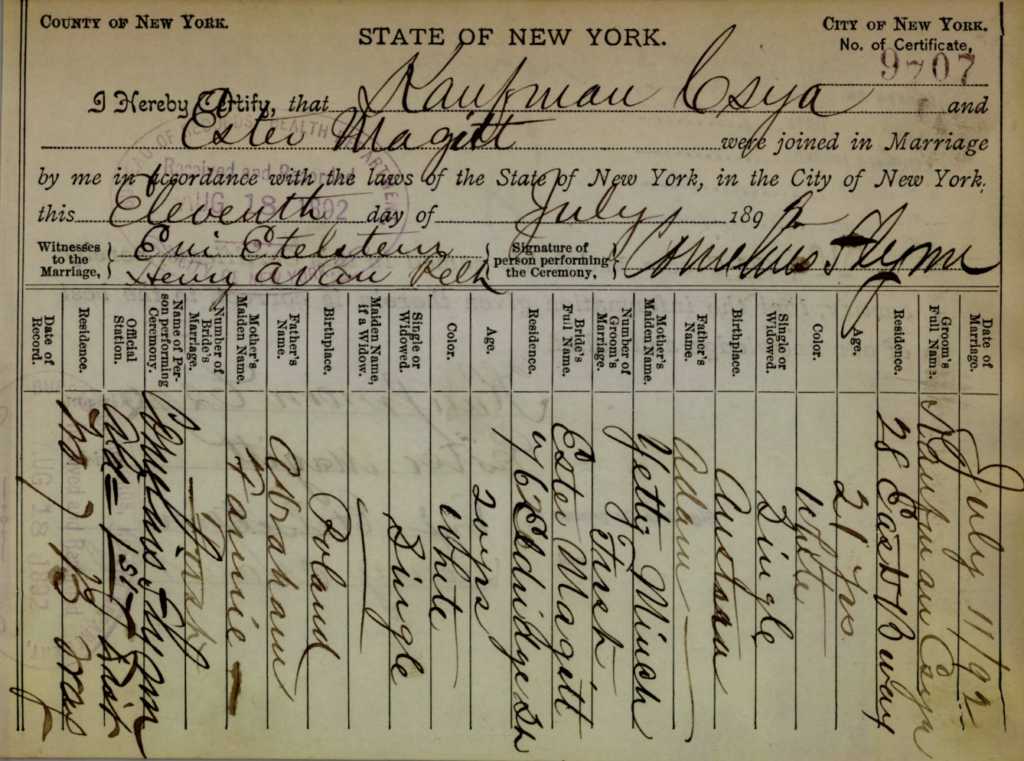 COUNTY OF NEW YORK.
CITY OF NEW YORK.
STATE OF NEW YORK.
No. of Certificate,
9707
I Hereby Certify, that Kaufman Csya and
Ester Magitt were joined in Marriage
by me in accordance with the laws of the State of New York, in the City of New York,
this Eleventh day of July 1892
Witnesses to the Marriage,
Emi Etelstein
Henry A Van Pelt
Signature of person performing the Ceremony,
Cornelius Flynn
Received and Reported
AUG 18 1892
Date of Marriage. July 11/92
Groom's Full Name. Khaufman Csya
Residence. 28 East B'way
Age. 21 Yrs
Color. White
Single or Widowed. Single
Birthplace. Austria
Father's Name. Adam
Mother's Maiden Name. Yetty Minch
Number of Groom's Marriage. First
Bride's Full Name. Ester Magitt
Residence. 76 Eldridge St
Age. 20 yrs
Color. White
Single or Widowed. Single
Maiden Name, if a Widow. —
Birthplace. Poland
Father's Name. Abraham
Mother's Maiden Name. Fannie —
Number of Bride's Marriage. First
Name of Person performing Ceremony. Cornelius Flynn
Official Station. Ald= 1st Dist
Residence. No 7 1/2
Date of Record.